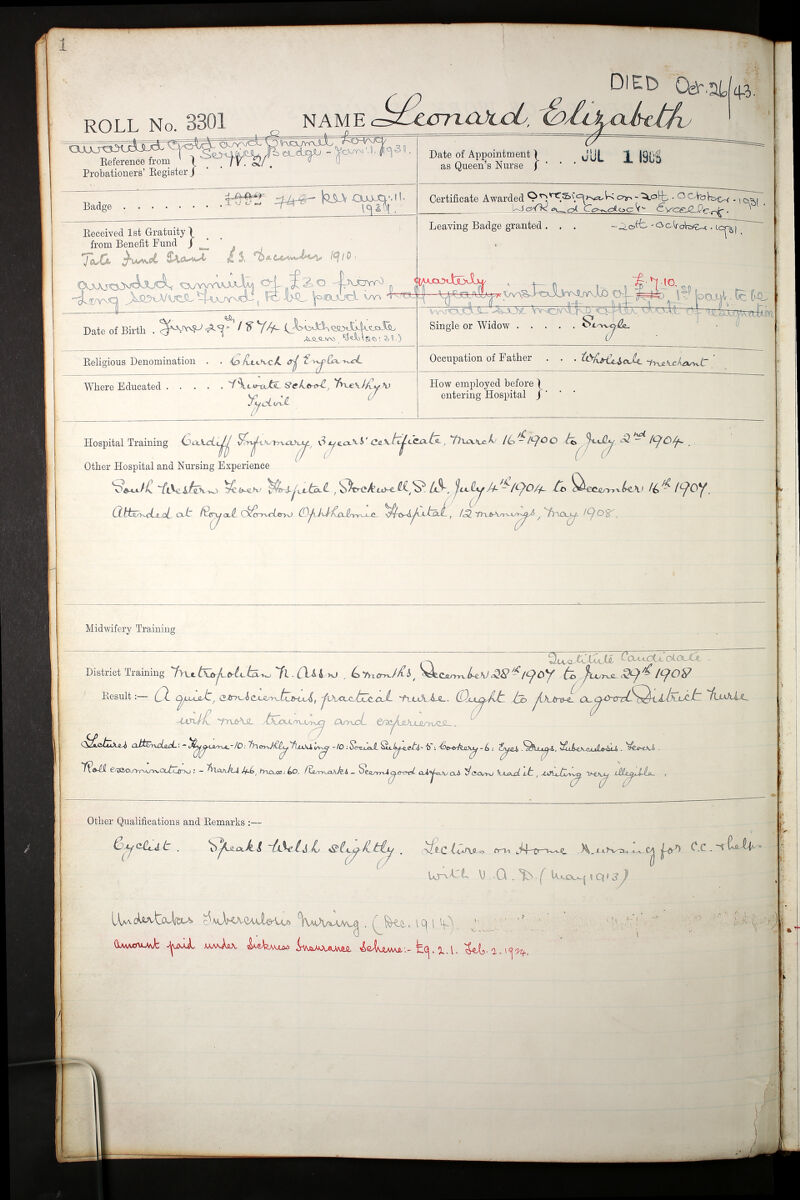 1
DIED Oct. 26/43.
ROLL No. 3301 NAME Leonard, Elizabeth
awarded Gold and Enamel Long
Service Badge - Jan: 1. 1931.
Reference from Probationers' Register W. 21.
Date of Appointment as Queen's Nurse JUL 1 1908
Badge 748 - Retd Aug: 11. 1931.
Certificate Awarded On resignation - 20th. October. 1931.
Work and Conduct - Excellent.
Received 1st Gratuity from Benefit Fund
Tate Fund Grant £3. December 1910.
Leaving Badge granted - 20th - October. 1931.
awarded annuity of £30 from quarterly £7.10.
Long Service Fund, to be paid in half-yearly instalments of £15 1st payt. to be
made six months after date of resignation
Date of Birth June 29th 1874 (birth certificate seen, )
Single or Widow Single
Religious Denomination Church of England
Occupation of Father Wholesale merchant
Where Educated Private School, Merthyr Tydvil
How employed before entering Hospital
Hospital Training Cardiff Infirmary, 3 years' certificate, March 16th 1900 to July 2nd 1904.
Other Hospital and Nursing Experience
South Western Fever Hospital, Stockwell, S.W., July 4th 1904 to December 16th 1907.
Attended at Royal London Ophthalmic Hospital, 12 mornings, May 1908.
Midwifery Training
Institute Candidate.
District Training Metropolitan N. Assn. 6 months, December 28th 1907 to June 29th 1908
Result:— A quiet, conscientious, practical nurse. Ought to prove a good District Nurse
with more training and experience.
Lectures attended:- Hygiene-10: Monthly Nursing-10: Social Subjects-5: Cookery-6: Eyes, Drugs, Tuberculosis, Fevers.
Roll examination:- Marks 46, max: 60. Remarks - Seems good as far as I can read it, writing very illegible.
Other Qualifications and Remarks:—
Cyclist. Speaks Welsh slightly. Lectures on Home Nursing for C.C. & help
with V.A.D. (May 1913)
Undertakes Tuberculosis Nursing. (Dec. 1914)
Amount paid under Sickness Insurance Scheme:- £9.2.1. Feb. 2. 1924.